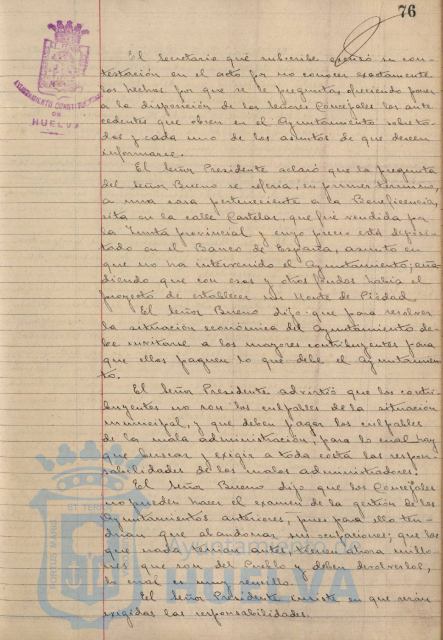 76
AYUNTAMIENTO CONSTITUCIONAL
DE
HUELVA
El Secretario que subscribe excusó su con-
testación en el acto por no conocer exactamente
los hechos por que se le pregunta, ofreciendo poner
a la disposición de los Señores Concejales los ante
cedentes que obren en el Ayuntamiento sobre to-
dos y cada uno de los asuntos de que deseen
informarse.
El Señor Presidente aclaró que la pregunta
del Señor Bueno se refería, en primer término,
a una casa perteneciente a la Beneficencia,
sita en la calle Castelar, que fué vendida por
la Junta provincial y cuyo precio está deposi-
tado en el Banco de España, asunto en
que no ha intervenido el Ayuntamiento; aña
diendo que con esos y otros fondos había el
proyecto de establecer un Monte de Piedad.
El Señor Bueno dijo: que para resolver
la situación económica del Ayuntamiento de-
be invitarse a los mayores contribuyentes para
que ellos paguen lo que debe el Ayuntamien-
to.
El Señor Presidente advirtió que los contri-
buyentes no son los culpables de la situación
municipal, y que deben pagar los culpables
de la mala administración, para lo cual hay
que buscar y exigir a toda costa las respon-
sabilidades de los malos administradores.
El Señor Bueno dijo que los Concejales
no pueden hacer el examen de la gestión de los
Ayuntamientos anteriores, pues para ello ten-
drían que abandonar sus ocupaciones; que los
que nada tenían antes tienen ahora millo-
nes que son del Pueblo y deben devolverlos,
lo cual es muy sencillo.
El Señor Presidente insiste en que serán
exigidas las responsabilidades.
PORTUS MARIS
ET TERR
Ayuntamiento de
HUELVA